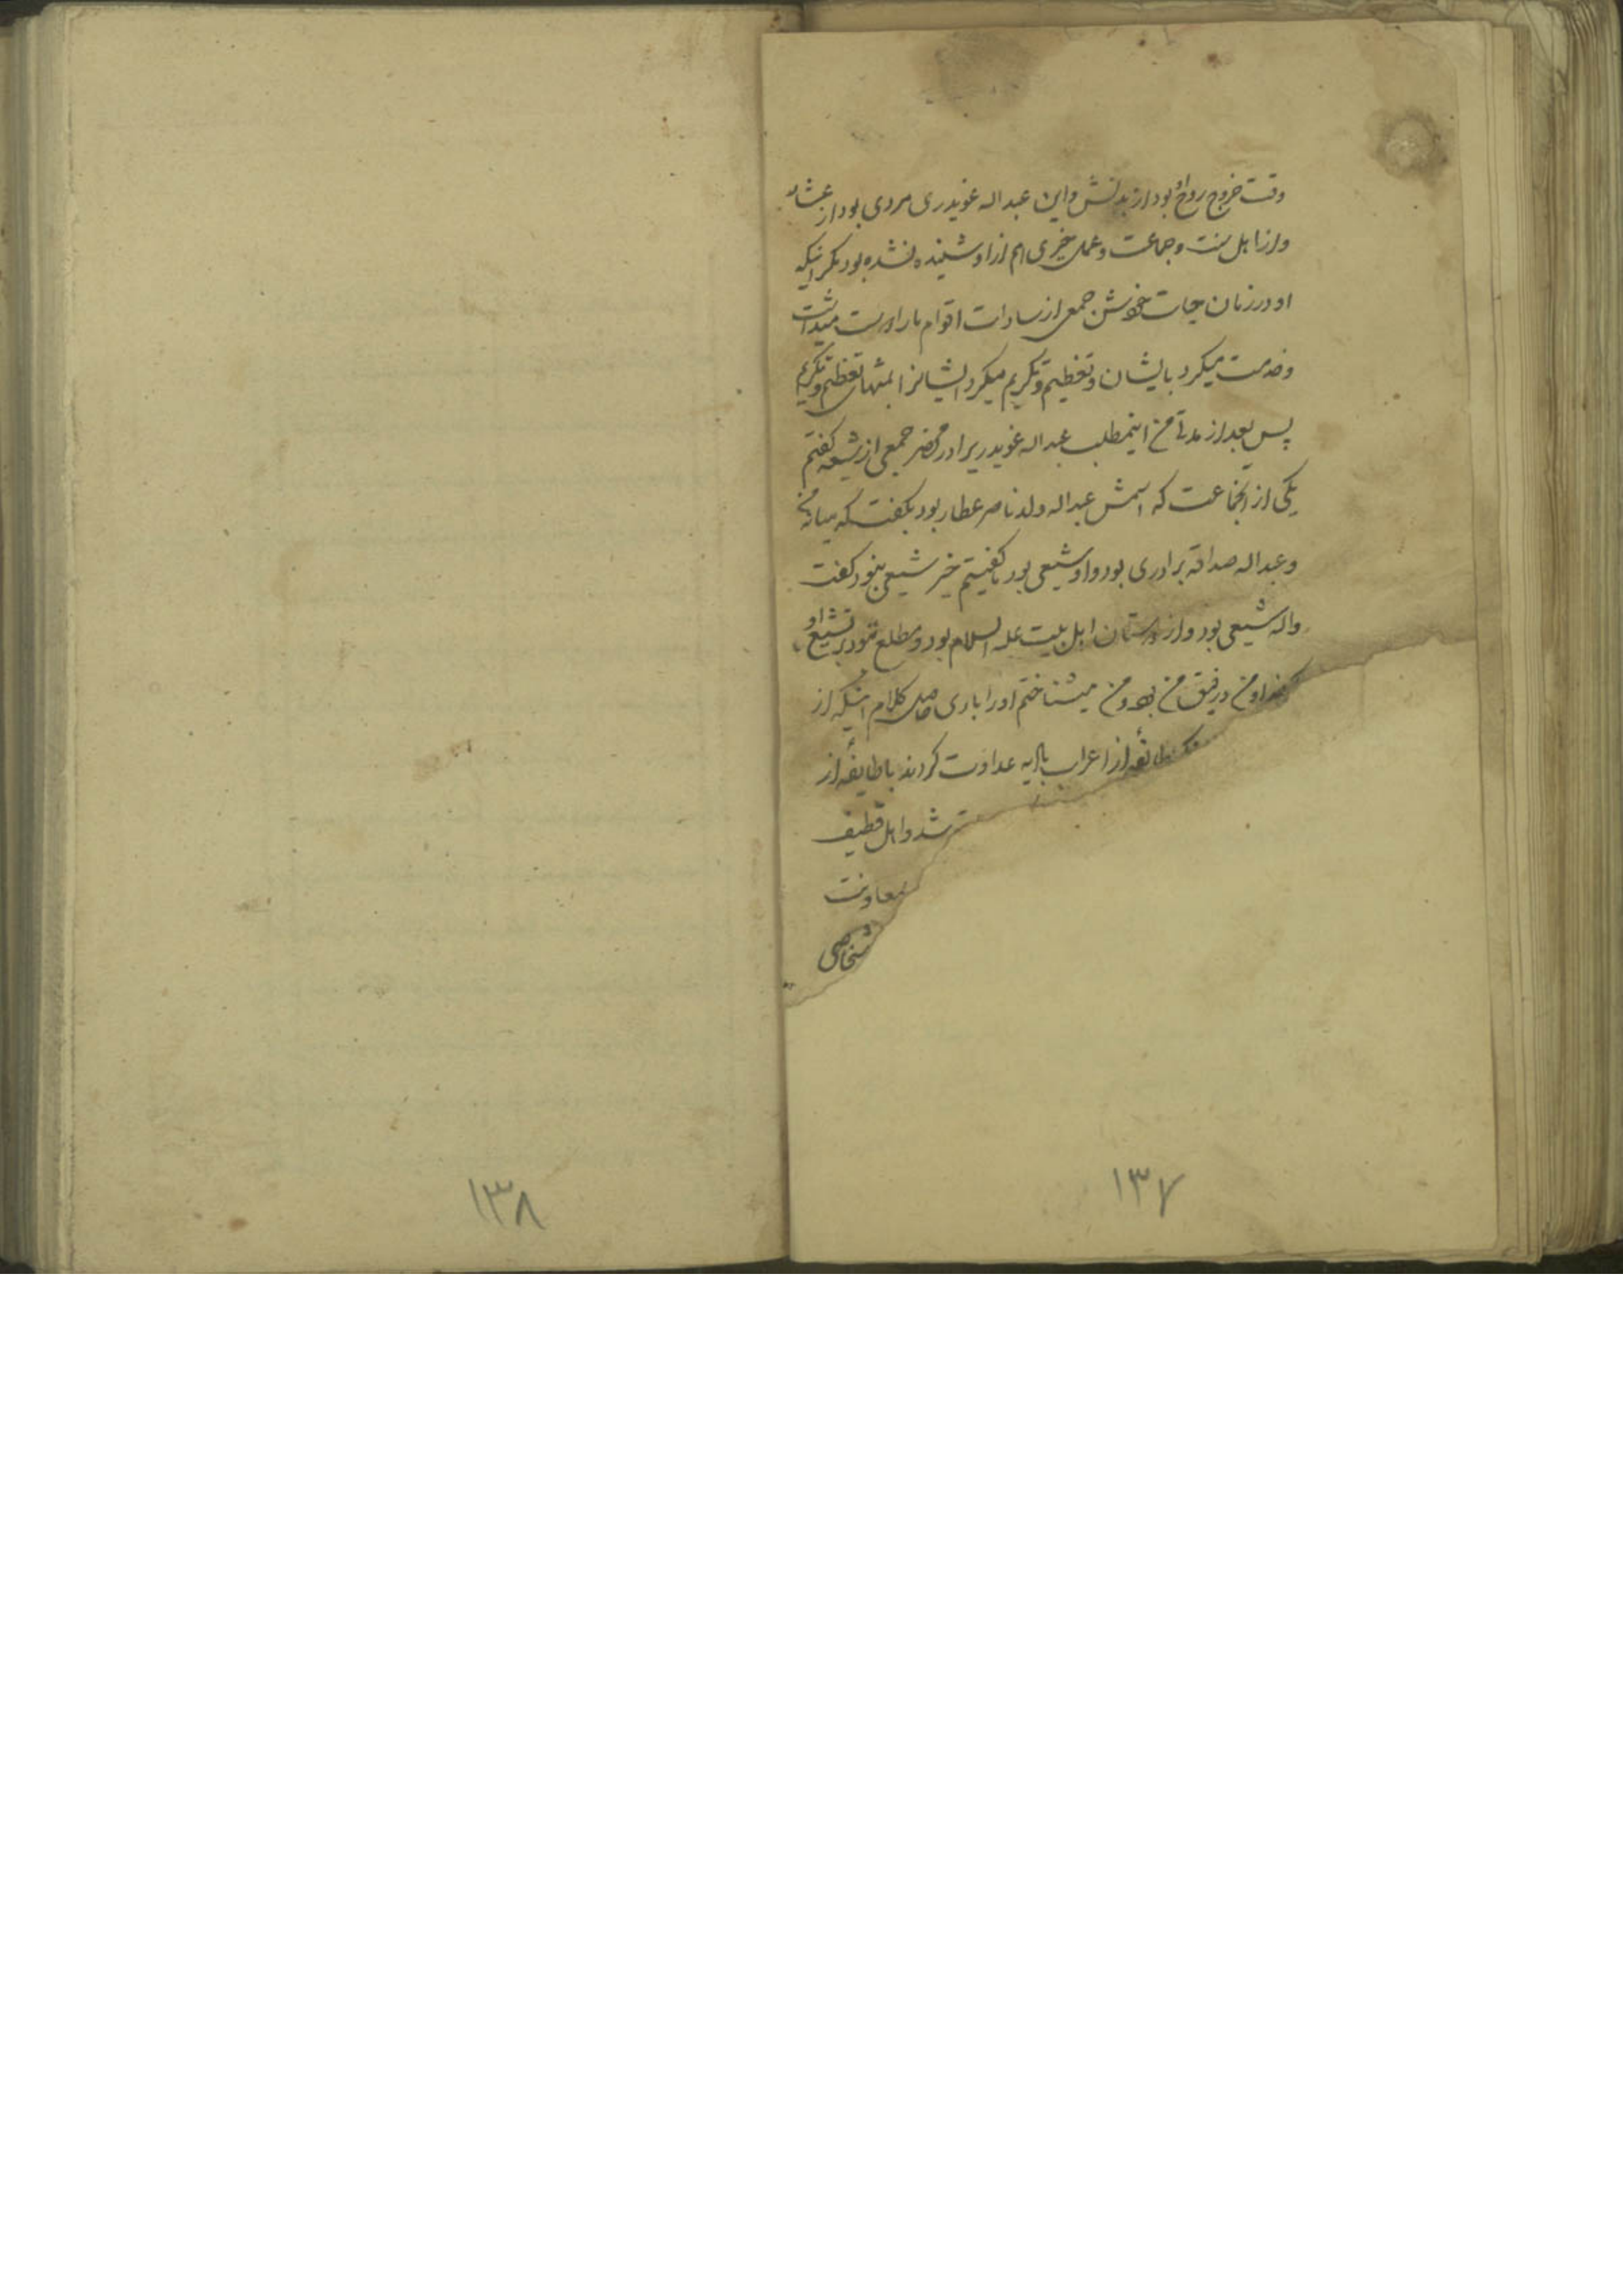 وقت خروج روح او بود از بدنش و این عبداله غویدری مردی بود از
و از اهل سنت و جماعت و عمل خیری هم از او شنیده نشده بود مگر اینکه
او در زمان حیات خودش جمعی از سادات اقوام ما را دوست میداشت
و خدمت میکرد بایشان و تعظیم و تکریم میکرد ایشانرا بمنتهای تعظیم و تکریم
پس بعد از مدتی من اینمطلب عبداله غویدریرا در محضر جمعی از شیعه گفتم
یکی از آنجماعت که اسمش عبداله ولد ناصر عطار بود بگفت که میانه من
و عبداله صداقه برادری بود و او شیعی بود ما گفتیم خیر شیعی نبود گفت
واله شیعی بود و از دوستان اهل بیت علیه السلام بود و مطلع نبود بر تشیع او
من و رفیق من بود و من میشناختم او را باری حاصل کلام اینکه از
طائفه از اعراب بادیه عداوت کردند با طایفه از
شد و اهل قطیف
معاونت
شخاصی
۱۳۷
۱۳۸